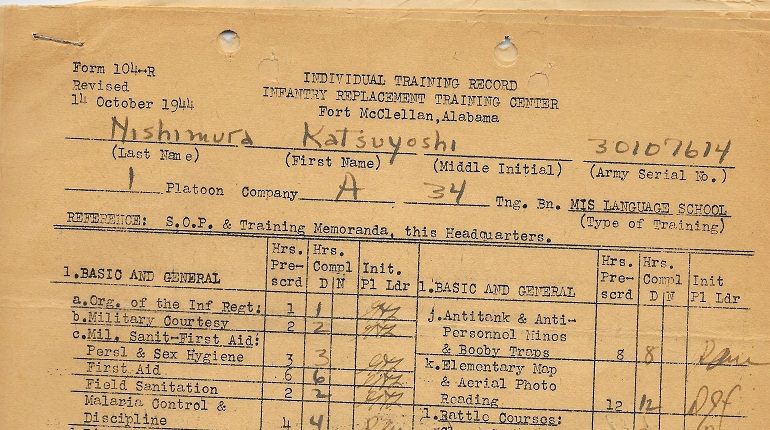 Form 104-R
Revised
14 October 1944
INDIVIDUAL TRAINING RECORD
INFANTRY REPLACEMENT TRAINING CENTER
Fort McClellan, Alabama
Nishimura Katsuyoshi 30107614
(Last Name) (First Name) (Middle Initial) (Army Serial No.)
1 Platoon Company A 34 Tng. Bn. MIS LANGUAGE SCHOOL
(Type of Training)
REFERENCE: S.O.P. & Training Memoranda, this Headquarters.
1.BASIC AND GENERAL
Hrs. Pre-scrd
Hrs. Compl D N
Init. Pl Ldr
a.Org. of the Inf Regt: 1 1
b.Military Courtesy 2 2
c.Mil. Sanit-First Aid:
Persl & Sex Hygiene 3 3
First Aid 6 6
Field Sanitation 2 2
Malaria Control &
Discipline 4 4
1.BASIC AND GENERAL
Hrs. Pre-scrd
Hrs. Compl D N
Init Pl Ldr
j.Antitank & Anti-
Personnel Mines
& Booby Traps 8 8
k.Elementary Map
& Aerial Photo
Reading 12 12
l.Battle Courses: